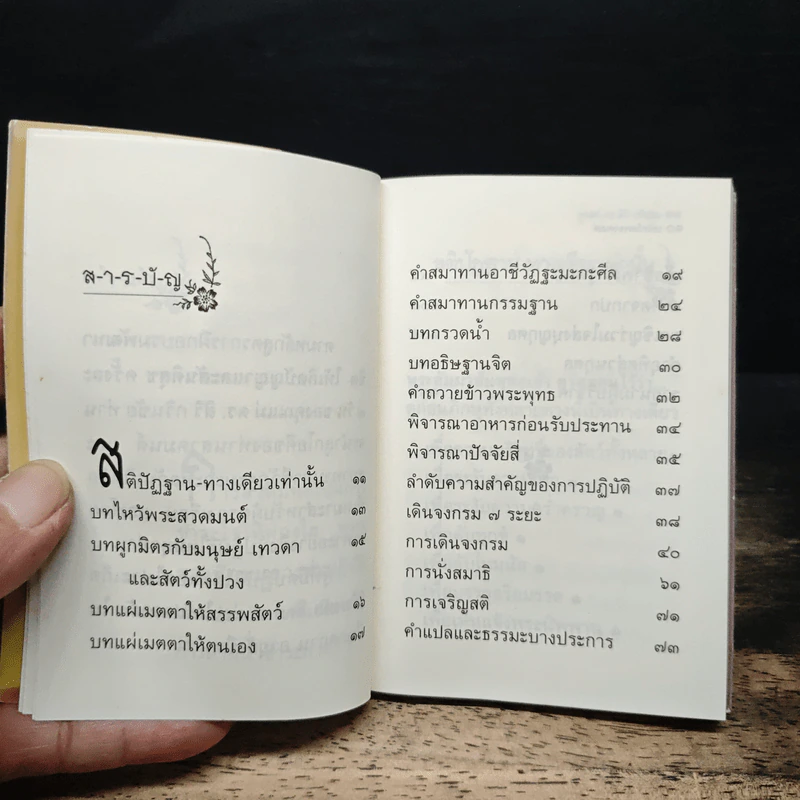 ส-า-ร-บั-ญ
สติปัฏฐาน-ทางเดียวเท่านั้น ๑๑
บทไหว้พระสวดมนต์ ๑๓
บทผูกมิตรกับมนุษย์ เทวดา ๑๕
และสัตว์ทั้งปวง
บทแผ่เมตตาให้สรรพสัตว์ ๑๖
บทแผ่เมตตาให้ตนเอง ๑๗
คำสมาทานอาชีวัฏฐะมะกะศีล ๑๙
คำสมาทานกรรมฐาน ๒๔
บทกรวดน้ำ ๒๘
บทอธิษฐานจิต ๓๐
คำถวายข้าวพระพุทธ ๓๒
พิจารณาอาหารก่อนรับประทาน ๓๔
พิจารณาปัจจัยสี่ ๓๕
ลำดับความสำคัญของการปฏิบัติ ๓๗
เดินจงกรม ๗ ระยะ ๓๘
การเดินจงกรม ๔๐
การนั่งสมาธิ ๖๑
การเจริญสติ ๗๑
คำแปลและธรรมะบางประการ ๗๓